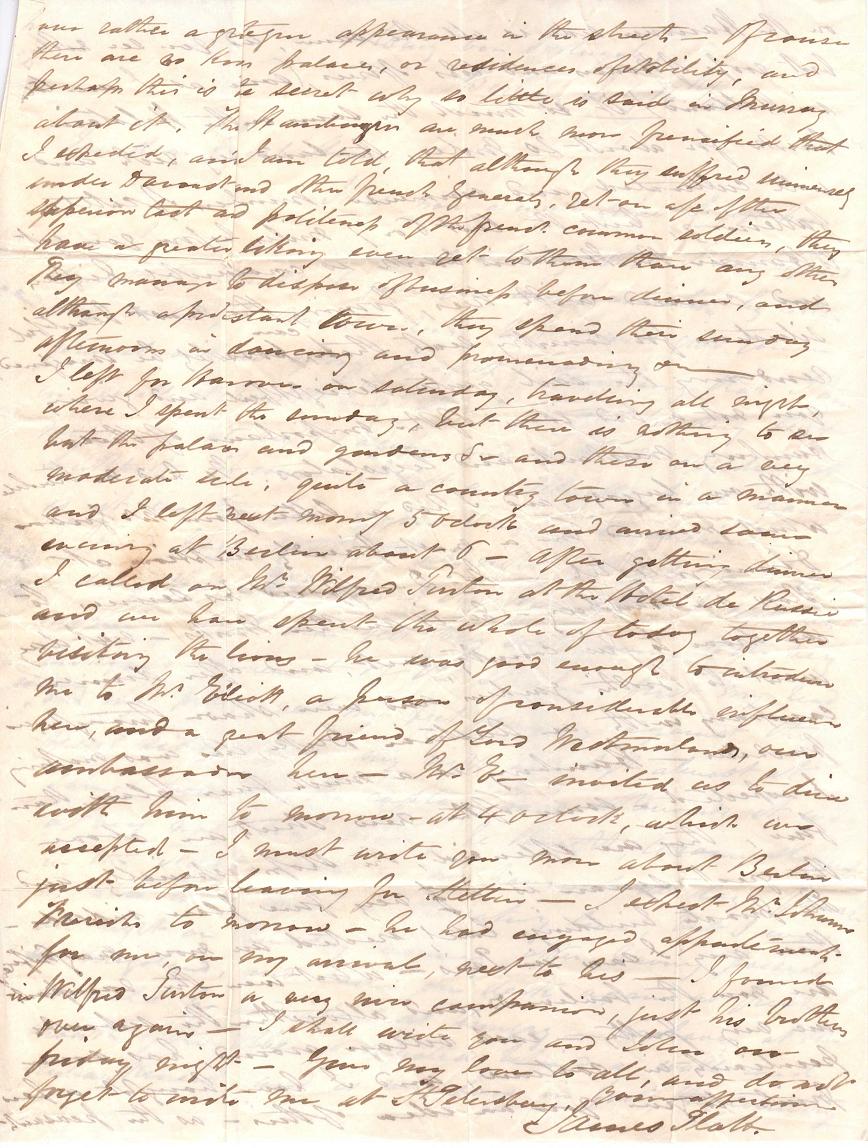 have rather a foreign appearance in the streets – Of course
there are no Kings palaces, or residences of Nobility, and
perhaps this is the secret why so little is said in Murray
about it. The Hamburgers are much more frenchified that
I expected, and I am told, that although they suffered immensely
under Davoust and other french Generals, yet on a/c of the
superior tact and politeness of the french common soldiers, they
have a greater liking even yet to them than any other
They manage to dispose of business before dinner, and
although a protestant town, they spend their sunday
afternoons in dancing and promenading &c
I left for Hanover on saturday, travelling all night,
where I spent the sunday, but there is nothing to see
but the palace and gardens &c and these on a very
moderate scale, quite a country town in a manner
and I left next morng 5 oclock and arrived same
evening at Berlin about 6 – after getting dinner
I called on Mr. Wilfred at the Hotel de Russie
and we have spent the whole of today together
visiting the lions – he was good enough to introduce
me to Mr. Elliott, a person of considerable influence
here, and a great friend of Lord Westmorland, our
ambassador here – Mr. E– invited us to dine
with him to morrow – at 4 oclock, which we
accepted – I must write you more about Berlin
just before leaving for Stettin – I expect Mr.
to morrow – he had engaged appartements
for me, on my arrival, next to his – I found
in Wilfred a very nice companion, just his brothers
over again – I shall write you and on
friday night – Give my love to all, and do not
forget to write me at St Petersburg, Your affectione
James Platt